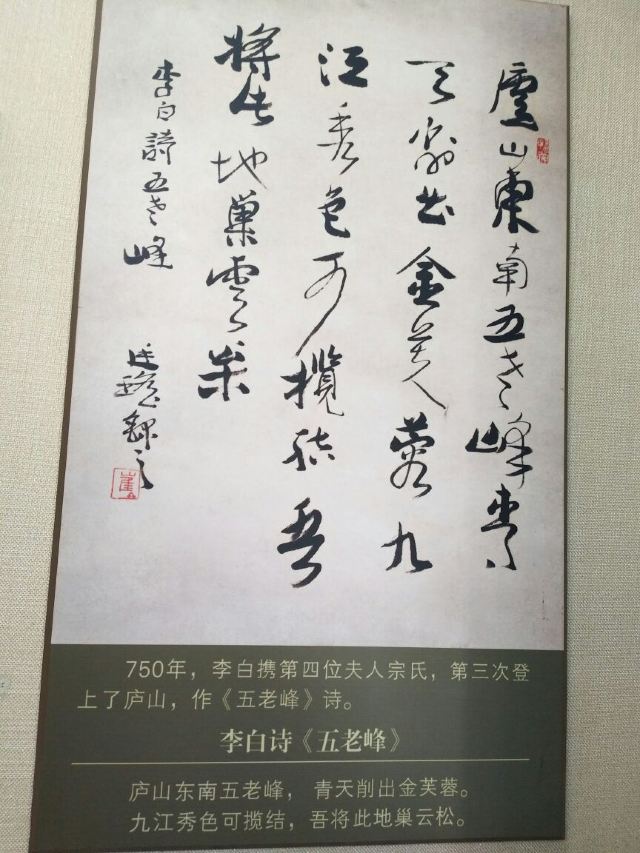 廬山東南五老峰青
天削出金芙蓉九
江秀色可攬結吾
將此地巢雲松
李白詩五老峰
錄之
750年，李白携第四位夫人宗氏，第三次登
上了庐山，作《五老峰》诗。
李白诗《五老峰》
庐山东南五老峰，青天削出金芙蓉。
九江秀色可揽结，吾将此地巢云松。